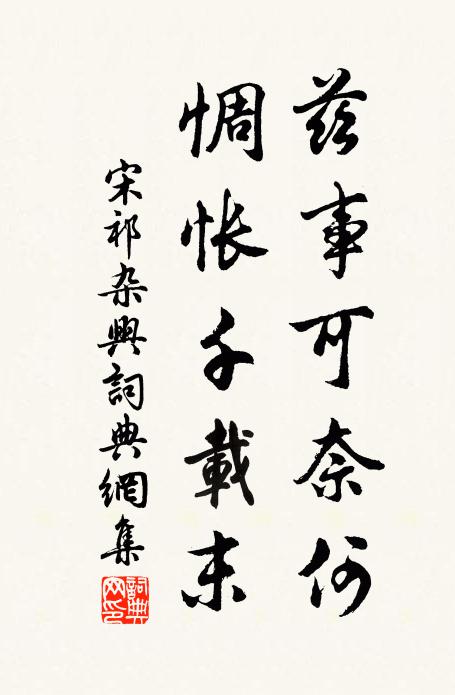 兹事可奈何
惆怅千載末
宋祁杂興詞典網集
詞典網印